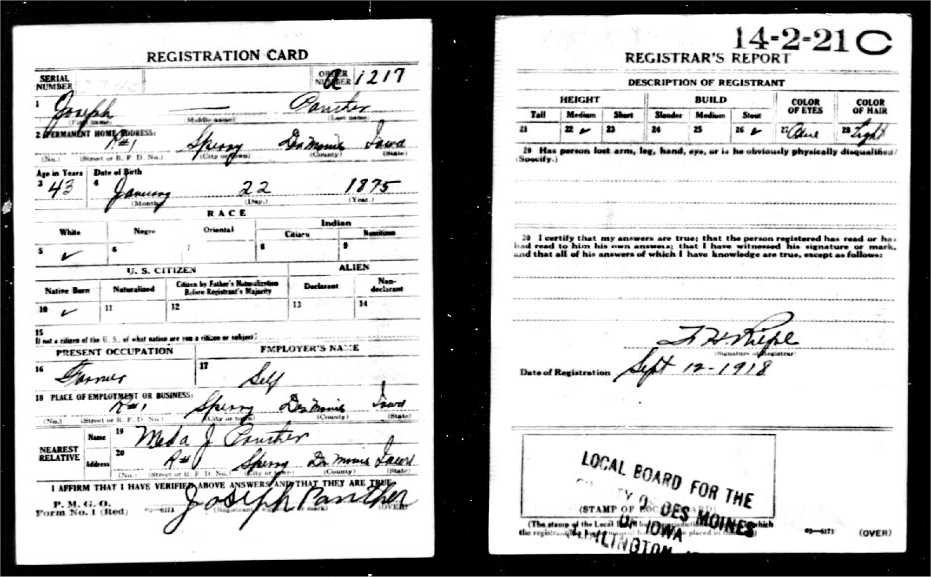 REGISTRATION CARD
SERIAL NUMBER
ORDER NUMBER A 1217
1 Joseph — Panther
(First name) (Middle name) (Last name)
2 PERMANENT HOME ADDRESS:
R#1 Sperry Des Moines Iowa
(No.) (Street or R. F. D. No.) (City or town) (County) (State)
Age in Years Date of Birth
3 43 4 January 22 1875
(Month) (Day.) (Year.)
RACE
White Negro Oriental Indian
Citizen Noncitizen
5 ✓ 6 7 8 9
U. S. CITIZEN ALIEN
Native Born Naturalized Citizen by Father's Naturalization Before Registrant's Majority Declarant Non-declarant
10 ✓ 11 12 13 14
15
If not a citizen of the U. S., of what nation are you a citizen or subject?
PRESENT OCCUPATION EMPLOYER'S NAME
16 Farmer 17 Self
18 PLACE OF EMPLOYMENT OR BUSINESS:
R#1 Sperry Des Moines Iowa
(No.) (Street or R. F. D. No.) (City or town) (County) (State)
NEAREST RELATIVE
Name 19 Meda J Panther
Address 20 R#1 Sperry Des Moines Iowa
(No.) (Street or R. F. D. No.) (City or town) (County) (State)
I AFFIRM THAT I HAVE VERIFIED ABOVE ANSWERS AND THAT THEY ARE TRUE
P. M. G. O.
Form No. 1 (Red) Joseph Panther
(OVER)
14-2-21 C
REGISTRAR'S REPORT
DESCRIPTION OF REGISTRANT
HEIGHT BUILD COLOR OF EYES COLOR OF HAIR
Tall Medium Short Slender Medium Stout
21 22 ✓ 23 24 25 26 ✓ 27 Blue 28 Light
29 Has person lost arm, leg, hand, eye, or is he obviously physically disqualified?
(Specify.)
30 I certify that my answers are true; that the person registered has read or has
had read to him his own answers; that I have witnessed his signature or mark,
and that all of his answers of which I have knowledge are true, except as follows:
(Signature of Registrar)
Date of Registration Sept 12-1918
LOCAL BOARD FOR THE
COUNTY OF DES MOINES
OF IOWA
BURLINGTON
(STAMP OF LOCAL BOARD)
(The stamp of the Local Board which
03—6171 (OVER)